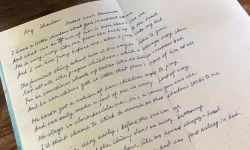 My Shadow Robert Louis Stevenson
I have a little shadow that goes in and out with me
And what can be the use of him is more than I can see
He is very, very like me from the heels up to the head
And I see him jump before me, when I jump into my bed
The funniest thing about him is the way he likes to grow
Not at all like proper children, which is always very slow
For he sometimes shoots up taller like an india rubber ball
And he sometimes gets so little that there's none of him at all
He hasn't got a notion of how children ought to play
And can only make a fool of me in every sort of way
He stays so close beside me, he's a coward you can see
I'd think shame to stick to nursie as that shadow sticks to me
very early, before the sun was up
the shining dew on every buttercup
like an arrant sleepy-head
and was fast asleep in bed.